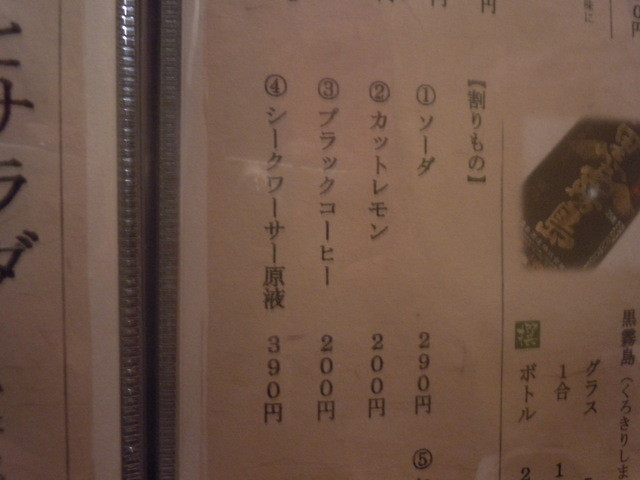 黒霧島（くろきりしま
グラス
1合
ボトル
【割りもの】
①ソーダ 290円
②カットレモン 200円
③ブラックコーヒー 200円
④シークワーサー原液 390円
⑤
とサラダ